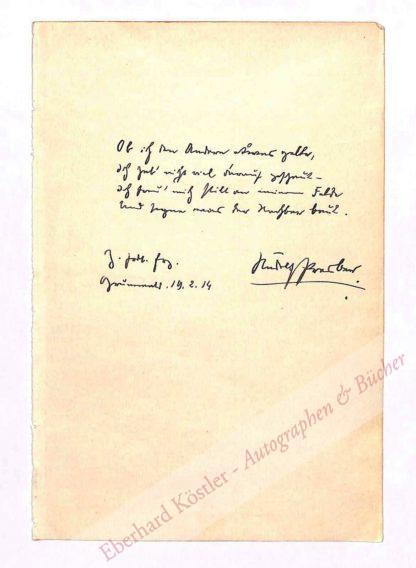 Ob ich den Andern etwas gelte,
Ich hab' nicht viel darauf geschaut –
Ich freu' mich still an meinem Felde
Und segne was der Nachbar baut.
Z.
Rudolf Presber.
Grunewald. 19.2.14
Eberhard Köstler - Autographen & Bücher